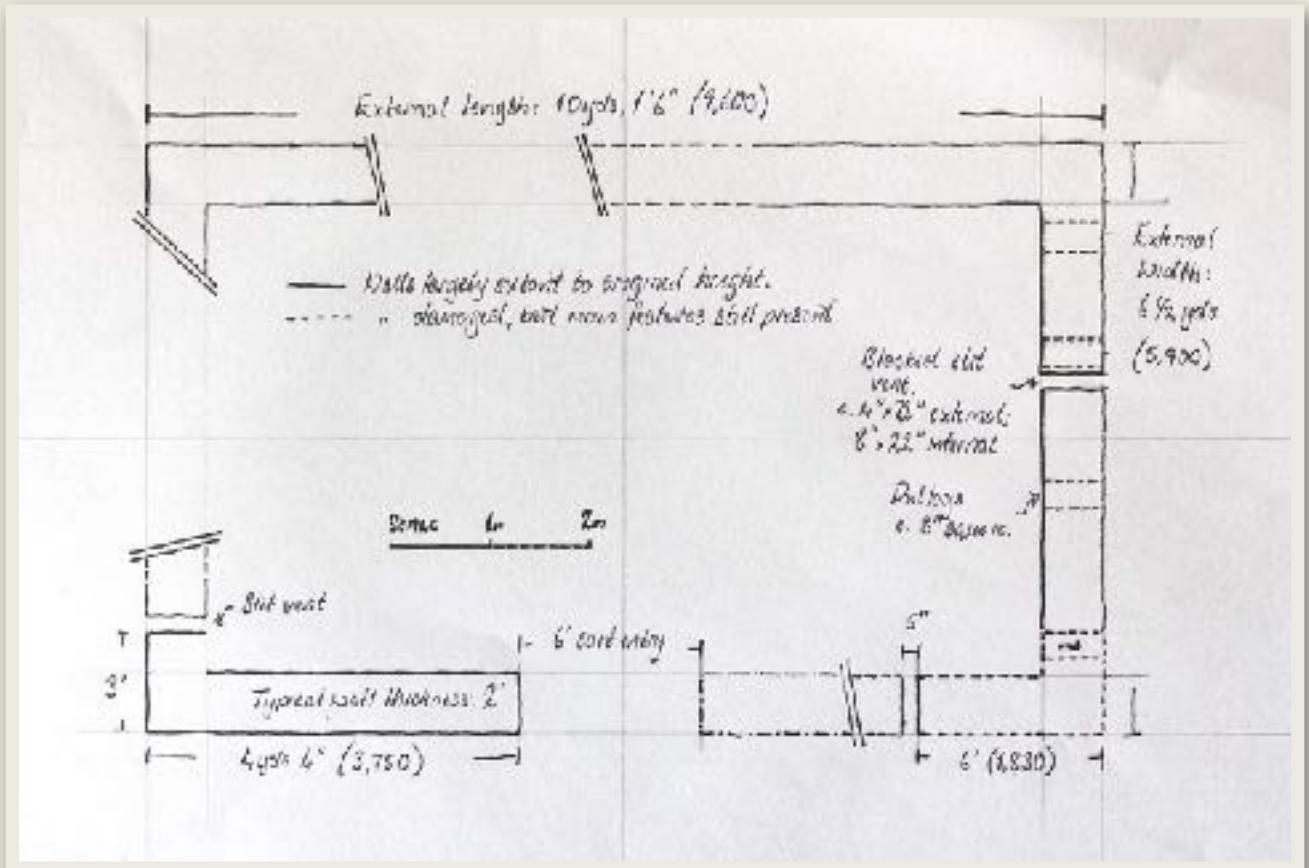 External length: 10yds, 1'6" (9,600)
Walls largely extant to original height.
" damaged, but main features still present
External
Width:
6½ yds
(5,900)
Blocked slit
vent.
external;
8" x 22" internal
c. 8" square.
Scale 1m 2m
Slit vent
6' cart entry
5"
3'
Typical wall thickness: 2'
4yds 4" (3,750)
6' (1,830)